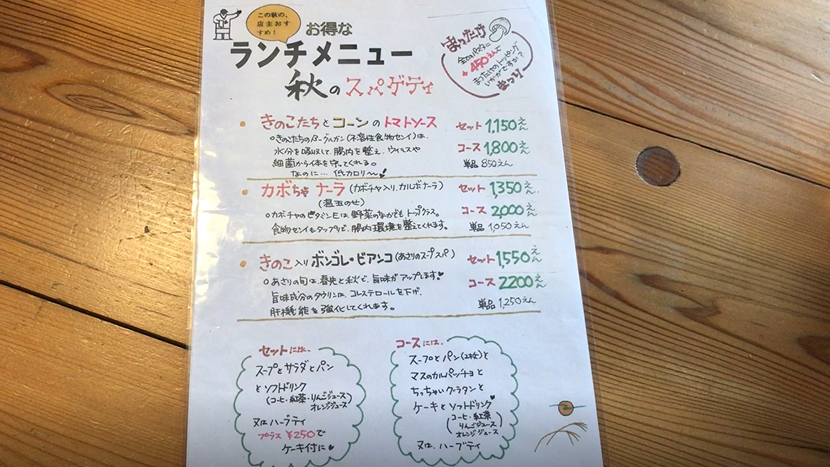 この秋の、
店主おすす
すめ！
お得な
ランチメニュー
秋のスパゲティ
まったけ
全てのパスタに
+450えんで
まつたけのトッピング
いかがですか？
まつり
きのこたちとコーンのトマトソース セット 1,150えん
○きのこたちのβ-グルカン(不溶性食物センイ)は、 コース 1,800えん
水分を吸収して、腸内を整え、ウイルスや 単品 850えん
細菌から体を守ってくれる。
なのに…低カロリ〜♥
カボちゃナーラ(カボチャ入り、カルボナーラ) セット 1,350えん
(温玉のせ) コース 2,000えん
○カボチャのビタミンEは、野菜のなかでもトップクラス。 単品 1,050えん
食物センイもタップリで、腸内環境を整えてくれます。
きのこ入りボンゴレ・ビアンコ(あさりのスープスパ) セット 1,550えん
○あさりの旬は、春先と秋で、旨味がアップします♥ コース 2200えん
旨味成分のタウリンは、コレステロールを下げ、 単品 1,250えん
肝機能を強化してくれます。
セットには、
スープとサラダとパン
とソフトドリンク
(コーヒー・紅茶・りんごジュース
オレンジジュース)
又はハーブティ
プラス ¥250で
ケーキ付に♥
コースには、
スープとパン(2枚)と
マスのカルパッチョと
ちっちゃいグラタンと
ケーキとソフトドリンク
(コーヒー・紅茶
りんごジュース
オレンジジュース)
又は、ハーブティ